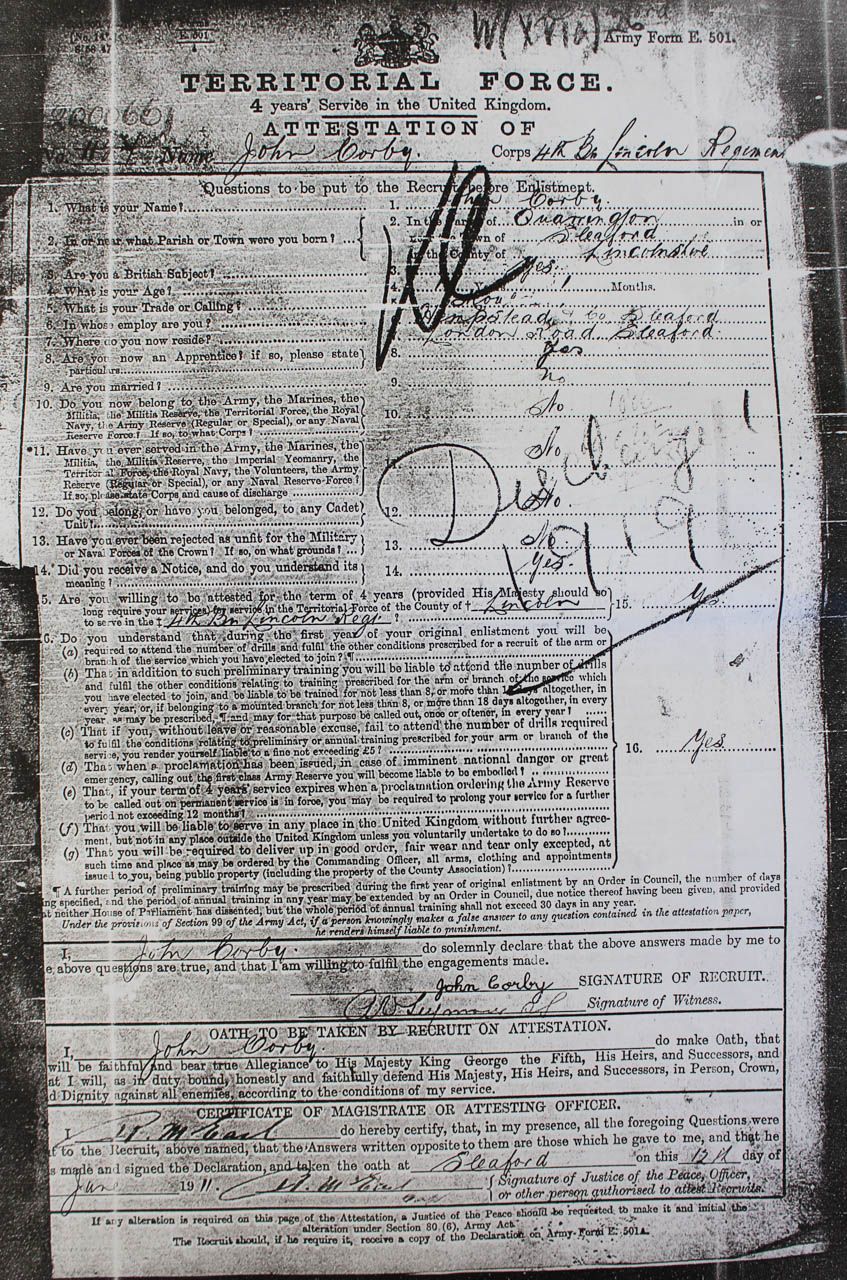 W(XVIa)
Army Form E. 501.
E. 501
TERRITORIAL FORCE.
4 years' Service in the United Kingdom.
ATTESTATION OF
200661
No. Name John Corby. Corps 4th Bn Lincoln Regiment
Questions to be put to the Recruit before Enlistment.
1. What is your Name? 1. John Corby.
2. In or near what Parish or Town were you born? 2. In the Parish of Quarrington in or
near the Town of Sleaford
in the County of Lincolnshire
3. Are you a British Subject? 3. Yes.
4. What is your Age? 4. Months.
5. What is your Trade or Calling?
6. In whose employ are you? Hempstead & Co Sleaford
7. Where do you now reside? London Road Sleaford.
8. Are you now an Apprentice? if so, please state particulars 8. Yes
9. Are you married? 9. no
10. Do you now belong to the Army, the Marines, the
Militia, the Militia Reserve, the Territorial Force, the Royal
Navy, the Army Reserve (Regular or Special), or any Naval
Reserve Force? If so, to what Corps? 10. No
*11. Have you ever served in the Army, the Marines, the
Militia, the Militia Reserve, the Imperial Yeomanry, the
Territorial Force, the Royal Navy, the Volunteers, the Army
Reserve (Regular or Special), or any Naval Reserve Force?
If so, please state Corps and cause of discharge 11. No
12. Do you belong, or have you belonged, to any Cadet
Unit? 12. No.
13. Have you ever been rejected as unfit for the Military
or Naval Forces of the Crown? If so, on what grounds? 13. No.
14. Did you receive a Notice, and do you understand its
meaning? 14. Yes.
1919
15. Are you willing to be attested for the term of 4 years (provided His Majesty should so
long require your services) for service in the Territorial Force of the County of † Lincoln
to serve in the ‡ 4th Bn Lincoln Regt ? 15. Yes
16. Do you understand that during the first year of your original enlistment you will be
(a) required to attend the number of drills and fulfil the other conditions prescribed for a recruit of the arm or
branch of the service which you have elected to join? ¶
(b) That in addition to such preliminary training you will be liable to attend the number of drills
and fulfil the other conditions relating to training prescribed for the arm or branch of the service which
you have elected to join, and be liable to be trained for not less than 8, or more than 15 days altogether, in
every year, or, if belonging to a mounted branch for not less than 8, or more than 18 days altogether, in every
year, as may be prescribed, ¶ and may for that purpose be called out, once or oftener, in every year?
(c) That if you, without leave or reasonable excuse, fail to attend the number of drills required
to fulfil the conditions relating to preliminary or annual training prescribed for your arm or branch of the
service, you render yourself liable to a fine not exceeding £5? 16. Yes
(d) That when a proclamation has been issued, in case of imminent national danger or great
emergency, calling out the first class Army Reserve you will become liable to be embodied?
(e) That, if your term of 4 years' service expires when a proclamation ordering the Army Reserve
to be called out on permanent service is in force, you may be required to prolong your service for a further
period not exceeding 12 months?
(f) That you will be liable to serve in any place in the United Kingdom without further agree-
ment, but not in any place outside the United Kingdom unless you voluntarily undertake to do so?
(g) That you will be required to deliver up in good order, fair wear and tear only excepted, at
such time and place as may be ordered by the Commanding Officer, all arms, clothing and appointments
issued to you, being public property (including the property of the County Association)?
¶ A further period of preliminary training may be prescribed during the first year of original enlistment by an Order in Council, the number of days
ing specified, and the period of annual training in any year may be extended by an Order in Council, due notice thereof having been given, and provided
at neither House of Parliament has dissented, but the whole period of annual training shall not exceed 30 days in any year.
Under the provisions of Section 99 of the Army Act, if a person knowingly makes a false answer to any question contained in the attestation paper,
he renders himself liable to punishment.
I, John Corby. do solemnly declare that the above answers made by me to
e above questions are true, and that I am willing to fulfil the engagements made.
John Corby SIGNATURE OF RECRUIT.
Signature of Witness.
OATH TO BE TAKEN BY RECRUIT ON ATTESTATION.
I, John Corby. do make Oath, that
will be faithful and bear true Allegiance to His Majesty King George the Fifth, His Heirs, and Successors, and
at I will, as in duty bound, honestly and faithfully defend His Majesty, His Heirs, and Successors, in Person, Crown,
d Dignity against all enemies, according to the conditions of my service.
CERTIFICATE OF MAGISTRATE OR ATTESTING OFFICER.
I do hereby certify, that, in my presence, all the foregoing Questions were
t to the Recruit, above named, that the Answers written opposite to them are those which he gave to me, and that he
s made and signed the Declaration, and taken the oath at Sleaford on this 12th day of
June 1911. Signature of Justice of the Peace, Officer,
or other person authorised to attest Recruits.
If any alteration is required on this page of the Attestation, a Justice of the Peace should be requested to make it and initial the
alteration under Section 80 (6), Army Act.
The Recruit should, if he require it, receive a copy of the Declaration on Army Form E. 501A.